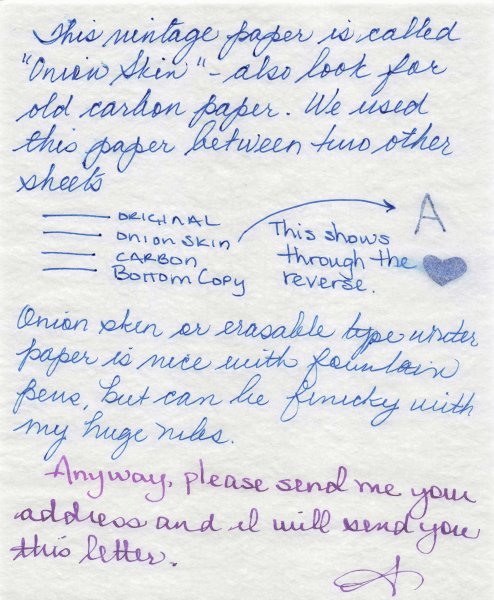 This vintage paper is called
"Onion Skin" - also look for
old carbon paper. We used
this paper between two other
sheets
ORIGINAL
ONION SKIN
CARBON
BOTTOM COPY
This shows
through the
reverse.
A
Onion sken or erasable type writer
paper is nice with fountain
pens, but can be finicky with
my huge nibs.
Anyway, please send me your
address and I will send you
this letter.
A